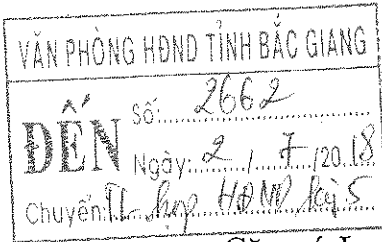 VĂN PHÒNG HĐND TỈNH BẮC GIANG
ĐẾN
Số: 2662
Ngày: 2 / 7 /2018
Chuyển: TL họp HĐND kỳ 5